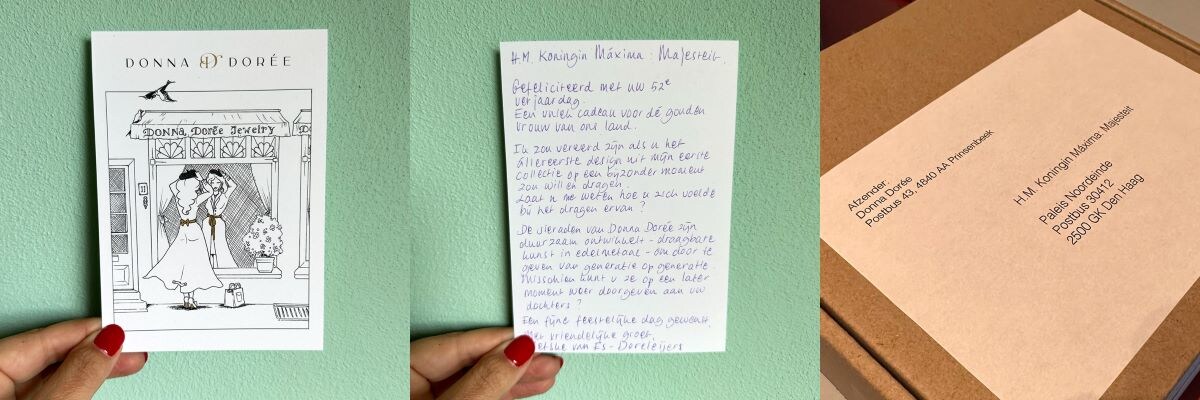 DONNA D DORÉE
Donna Dorée Jewelry
H.M. Koningin Máxima: Majesteit.
Gefeliciteerd met uw 52e
verjaardag.
Een uniek cadeau voor de gouden
vrouw van ons land.
Ik zou vereerd zijn als u het
allereerste design uit mijn eerste
collectie op een bijzonder moment
zou willen dragen.
Laat u me weten hoe u zich voelde
bij het dragen ervan?
De sieraden van Donna Dorée zijn
duurzaam ontwikkelt - draagbare
kunst in edelmetaal - om door te
geven van generatie op generatie.
Misschien kunt u ze op een later
moment weer doorgeven aan uw
dochters?
Een fijne feestelijke dag gewenst,
Met vriendelijke groet,
van Es - Doreleijers
Afzender:
Donna Dorée
Postbus 43, 4840 AA Prinsenbeek
H.M. Koningin Máxima, Majesteit
Paleis Noordeinde
Postbus 30412
2500 GK Den Haag